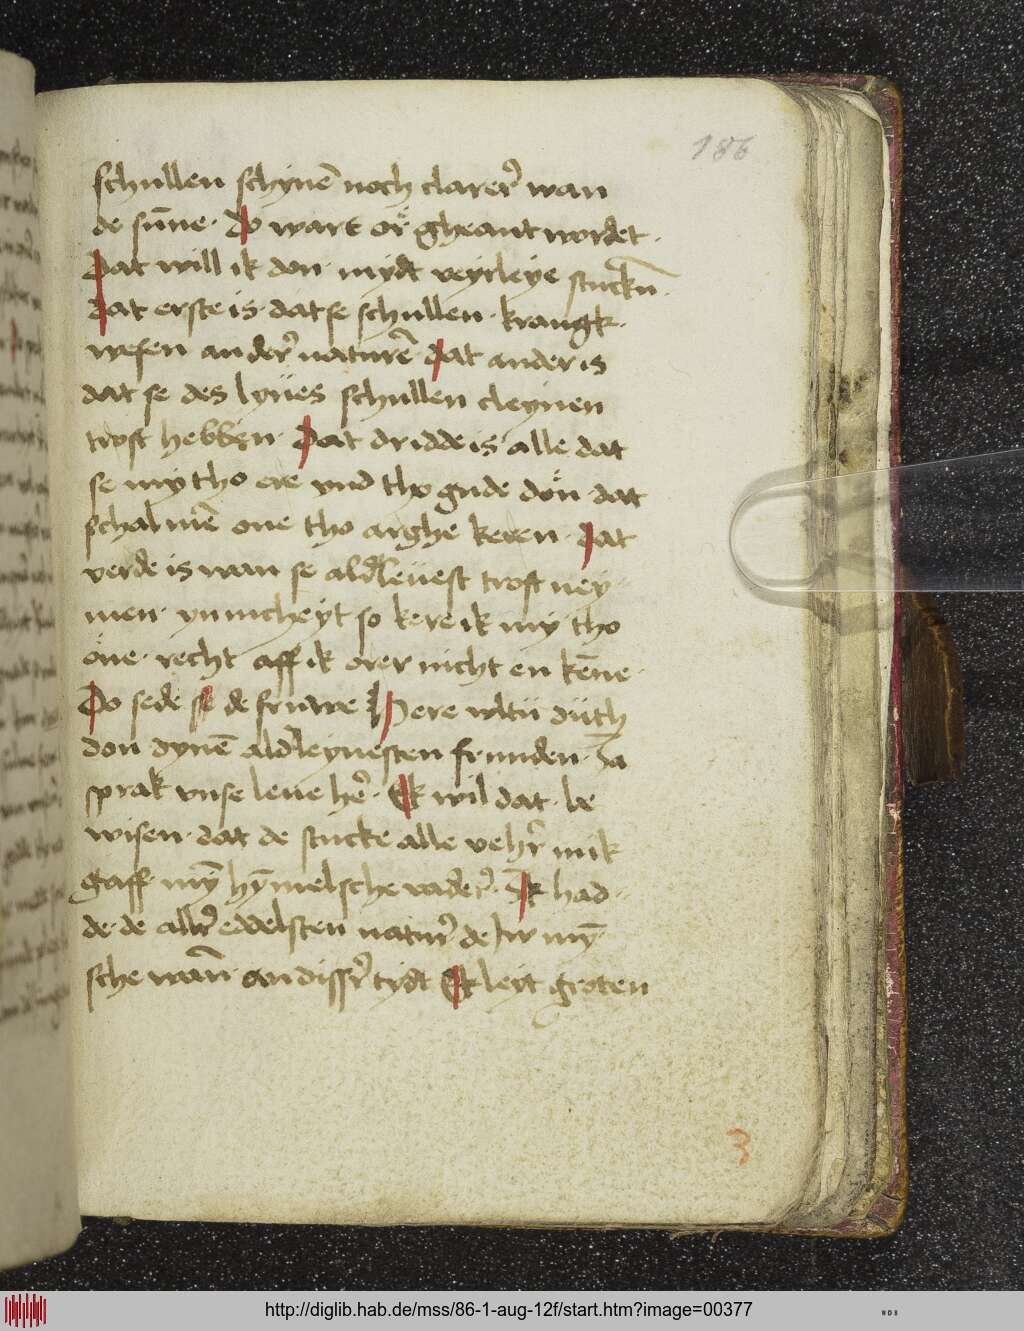 186
schullen schynē noch clarer̕ wan
de sūne · do wart or̕ gheant wordet ·
Dat will ik don · mydt veyrleye stuckn̄
Dat erste is · dat se schullen · krangk ·
wesen an der̕ naturē dat ander is
dat se des lyues schullen cleynen
trost hebben · Dat dridde is alle dat
se my tho ere vnd tho gude dön dat
schal mē one tho arghe keren · dat
verde is wan se aldleuest trost ney
men · ynnicheyt so kere ik my tho
öne · recht aff ik orer nicht en kēne ·
Do sede se de fruwe Here wltu düth
don dynē aldleynesten frunden · Ja
sprak vnse leue her̕ · Ek wil dat · be
wisen · dat de stucke alle vehr̕ mik
gaff mȳ hȳmelsche vader̕ · Ik had
de · de aller̕ eddelsten natur̕ de ju mȳ
sche wan̄ · an disser̕ tydt Ek leyt groten
3
http://diglib.hab.de/mss/86-1-aug-12f/start.htm?image=00377